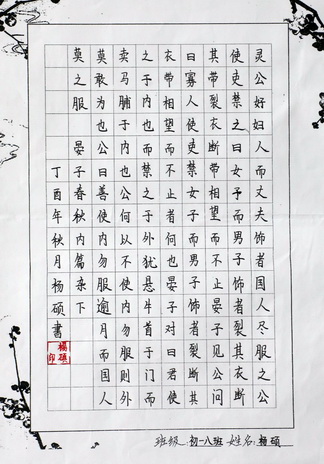 灵公好妇人而丈夫饰者国人尽服之公
使吏禁之曰女子而男子饰者裂其衣断
其带裂衣断带相望而不止晏子见公问
曰寡人使吏禁女子而男子饰者裂断其
衣带相望而不止者何也晏子对曰君使
之于内也而禁之于外犹悬牛首于门而
卖马脯于内也公何以不使内勿服则外
莫敢为也公曰善使内勿服逾月而国人
莫之服 晏子春秋内篇杂下
丁酉年秋月杨硕书
杨硕印
班级:初一八班 姓名:杨硕